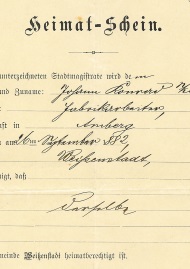 Heimat-Schein.
unterzeichneten Stadtmagistrate wird dem
und Zuname: Johann Konrad
Fabrikarbeiter,
ft in Amberg
am 26ten September 1882,
Weißenstadt,
igt, daß
Derselbe
meinde Weißenstadt heimatberechtigt ist.